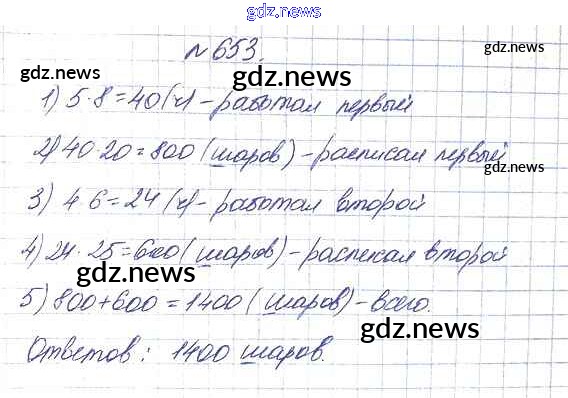 gdz.news
gdz.news
№ 653.
gdz.news gdz.news gdz.news
1) 5·8=40 (ч) - работал первый
2) 40·20=800 (шаров) - расписал первый
gdz.news
3) 4 6=24 (ч) - работал второй
4) 24·25=600 (шаров) - расписал второй
gdz.news gdz.news
5) 800+600=1400 (шаров) - всего.
gdz.news
Ответов: 1400 шаров.